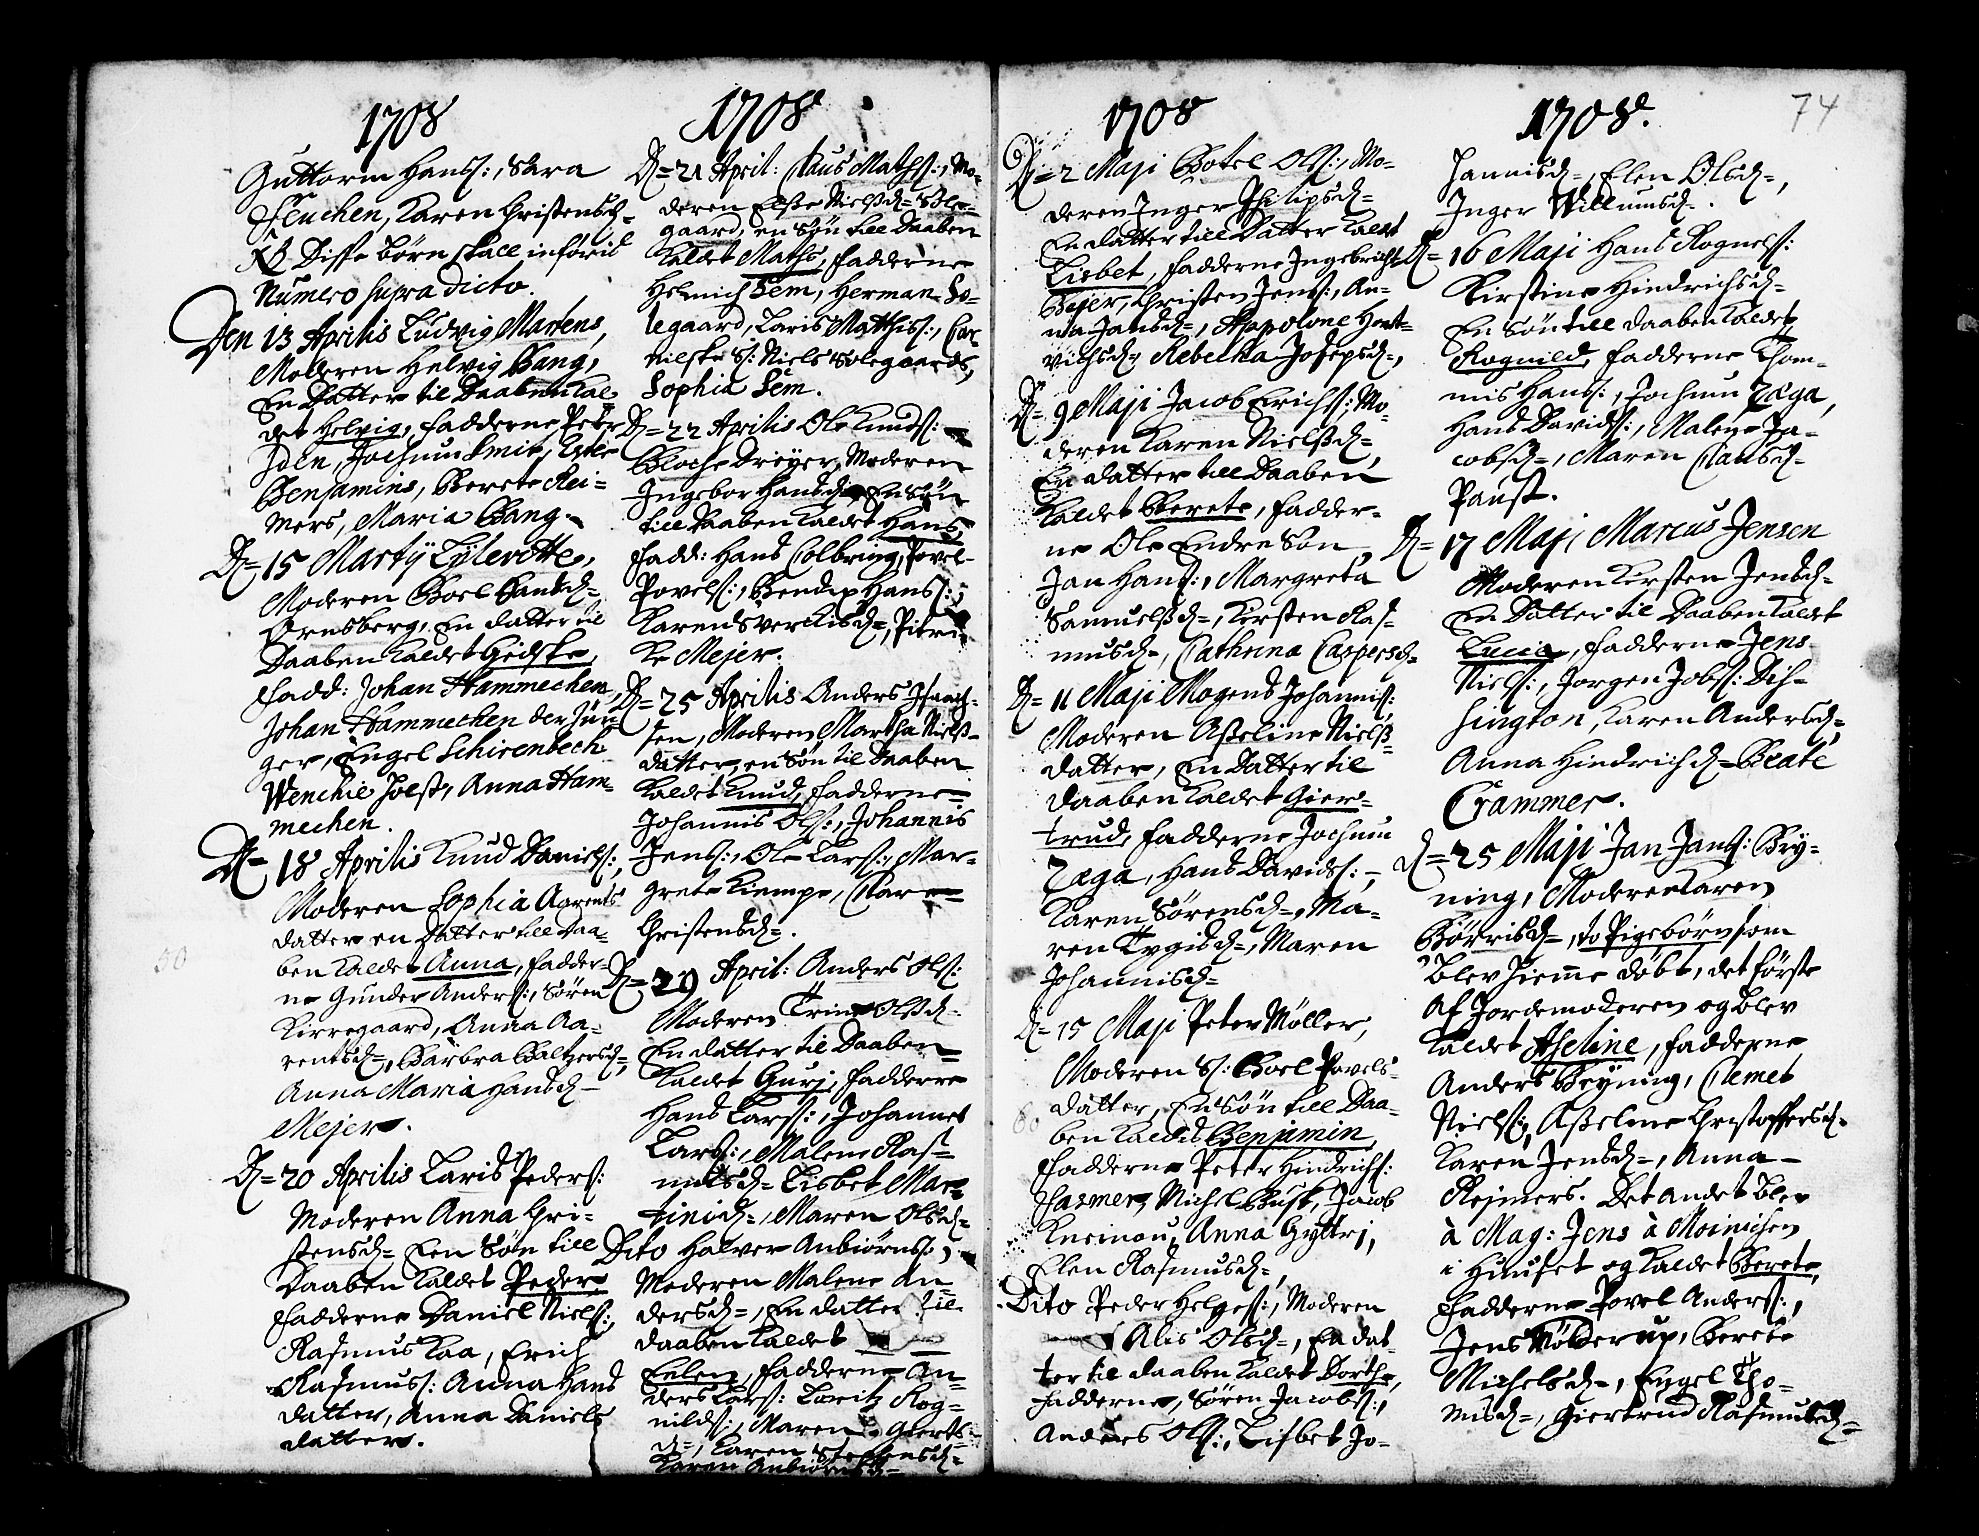 1708
Guttorm Hans:, Sara
Feuchen, Karen Christensd=
NB Disse børn skall inføris
Numero supra dicto.
Den 13 Aprilis Ludvig Martens,
Moderen Helvig Bang,
En Datter til Daaben Kal=
det Helvig, Fadderne Peter
Iden, Jochum Smit,
Benjamins, Berete Rei=
mers, Maria Bang.
D= 15 Marty Tylevotte,
Moderen Boel Hansd=
Ornsberg, En datter til
Daaben Kaldet Gidske,
Fadd: Johan Hammechen,
Johan Hammechen der Jün
ger, Engel Schirenbech
Wenchie Holst, Anna Ham=
mechen.
D= 18 Aprilis Knud Daniels:,
Moderen Sophia Aarents
datter en Datter till Daa=
ben Kaldet Anna, Fadder=
ne Gunder Anders:, Søren
Kirregaard, Anna Aa=
rentsd=, Barbra Baltzersd=,
Anna Maria Hansd=
Mejer.
50
D= 20 Aprilis Laris Peders:
Moderen Anna Chri=
stensd= Een Søn till
Daaben Kaldet Peder,
Fadderne Daniel Niels:,
Rasmus Kaa, Erich
Rasmuss: Anna Hans
datter, Anna Daniels
datter.
1708
D= 21 April: Claus Maths:, Mo=
deren Else Nielsd= Sole=
gaard, en Søn till Daaben
Kaldet Maths, Fadderne
Helmich Sem, Herman So=
legaard, Laris Matthis:, Cor
nilske S: Niels Solegaards,
Sophia Sem.
D= 22 Aprilis Ole Knuds:
Bloche Dreyer, Moderen
Ingebor Hansd= En Søn
till Daaben Kaldet Hans
Fadd: Hans Colbring, Povel
Povels:, Bendix Hans:,
Karen Sverkisd=, Pitri=
ke Mejer.
D= 25 Aprilis Anders Isach=
sen, Moderen Martha Niels=
datter, en Søn til Daaben
Kaldet Knud, Fadderne
Johannis Ols:, Johannis
Jens:, Ole Lars:, Mar=
grete Kiempe, Karen
Christensd=.
D= 29 April: Anders Ols:
Moderen Trine Olsd=
En datter til Daaben
Kaldet Guri, Fadderne
Hans Lars:, Johannes
Lars:, Malene Ras=
musd= Lisbet Mar=
tinid=, Maren Olsd=
Dito Halver Anbiørns:,
Moderen Malene An=
dersd=, En datter til
daaben Kaldet
Eelen, Fadderne An=
ders Lars: Lavritz Rog=
nilds:, Maren Gierts=
d=, Karen Steffensd=
Karen Anbiørnsd=
1708
D= 2 Maji Botel Ols:, Mo=
deren Inger Philipsd=
En datter till Datter Kaldt
Lisbet, Fadderne Ingebricht
Bejer, Christen Jens:, An=
na Jansd=, Appolone Hent=
richsd=, Rebecka Josepsd=,
D= 9 Maji Jacob Erichs:, Mo=
deren Karen Nielsd=,
En datter till Daaben
Kaldet Berete, Fadder=
ne Ole Endresøn,
Jan Hans:, Margreta
Samuelsd=, Kirsten Ras=
musd=, Cathrina Caspersd=
D= 11 Maji Mogens Johannis:
Moderen Asseline Niels=
datter, En Datter til
daaben Kaldet Gier=
trud, Fadderne Jochum
Zæga, Hans Davids:,
Karen Sørensd=, Ma=
ren Tygisd=, Maren
Johannisd=
D= 15 Maji Peter Møller,
Moderen S: Boel Povels=
datter, En Søn till Daa=
ben Kaldis Benjamin,
60
Fadderne Peter Hindrichs:
Farmer, Michel Busk, Jacob
Kneinou, Anna Gyttri,
Elen Rasmusd=,
Dito Peder Helges:, Moderen
Alis Olsd=, En dat=
ter til daaben Kaldet Dorthe,
Fadderne, Søren Jacobs:,
Anders Ols:, Lisbet Jo=
1708.
74
hannisd=, Elen Olsd=,
Inger Willumsd=.
D= 16 Maji Hans Rognels:
Kirstine Hindrichsd=
En Søn till daaben Kaldet
Rognild, Fadderne Thom=
mis Hans:, Jochum Zæga,
Hans Davids:, Malene Ja=
cobsd=, Maren Clausd=
Paust.
D= 17 Maji Marcus Jensen
Moderen Kirsten Jensd=
En Datter til Daaben Kaldet
Lucia, Fadderne Jens
Niels:, Jorgen Jobs: Dis=
sington, Karen Andersd=,
Anna Hindrichsd= Beate
Crammer.
D= 25 Maji Jan Jans: Bry=
ning, Moderen Karen
Børrisd=, to Pigebørn som
blev hieme døbt, det første
af Jordemoderen og blev
Kaldet Asseline, Fadderne
Anders Bryning, Clemet
Niels:, Asseline Christoffersd=
Karen Jensd=, Anna
Rejmers. Det andet blev
à Mag: Jens à Moinichen
i Huuset og Kaldet Berete,
Fadderne Povel Anders:,
Jens Nølderup, Berete
Michelsd=, Engel Tho=
misd=, Giertrud Rasmusd=